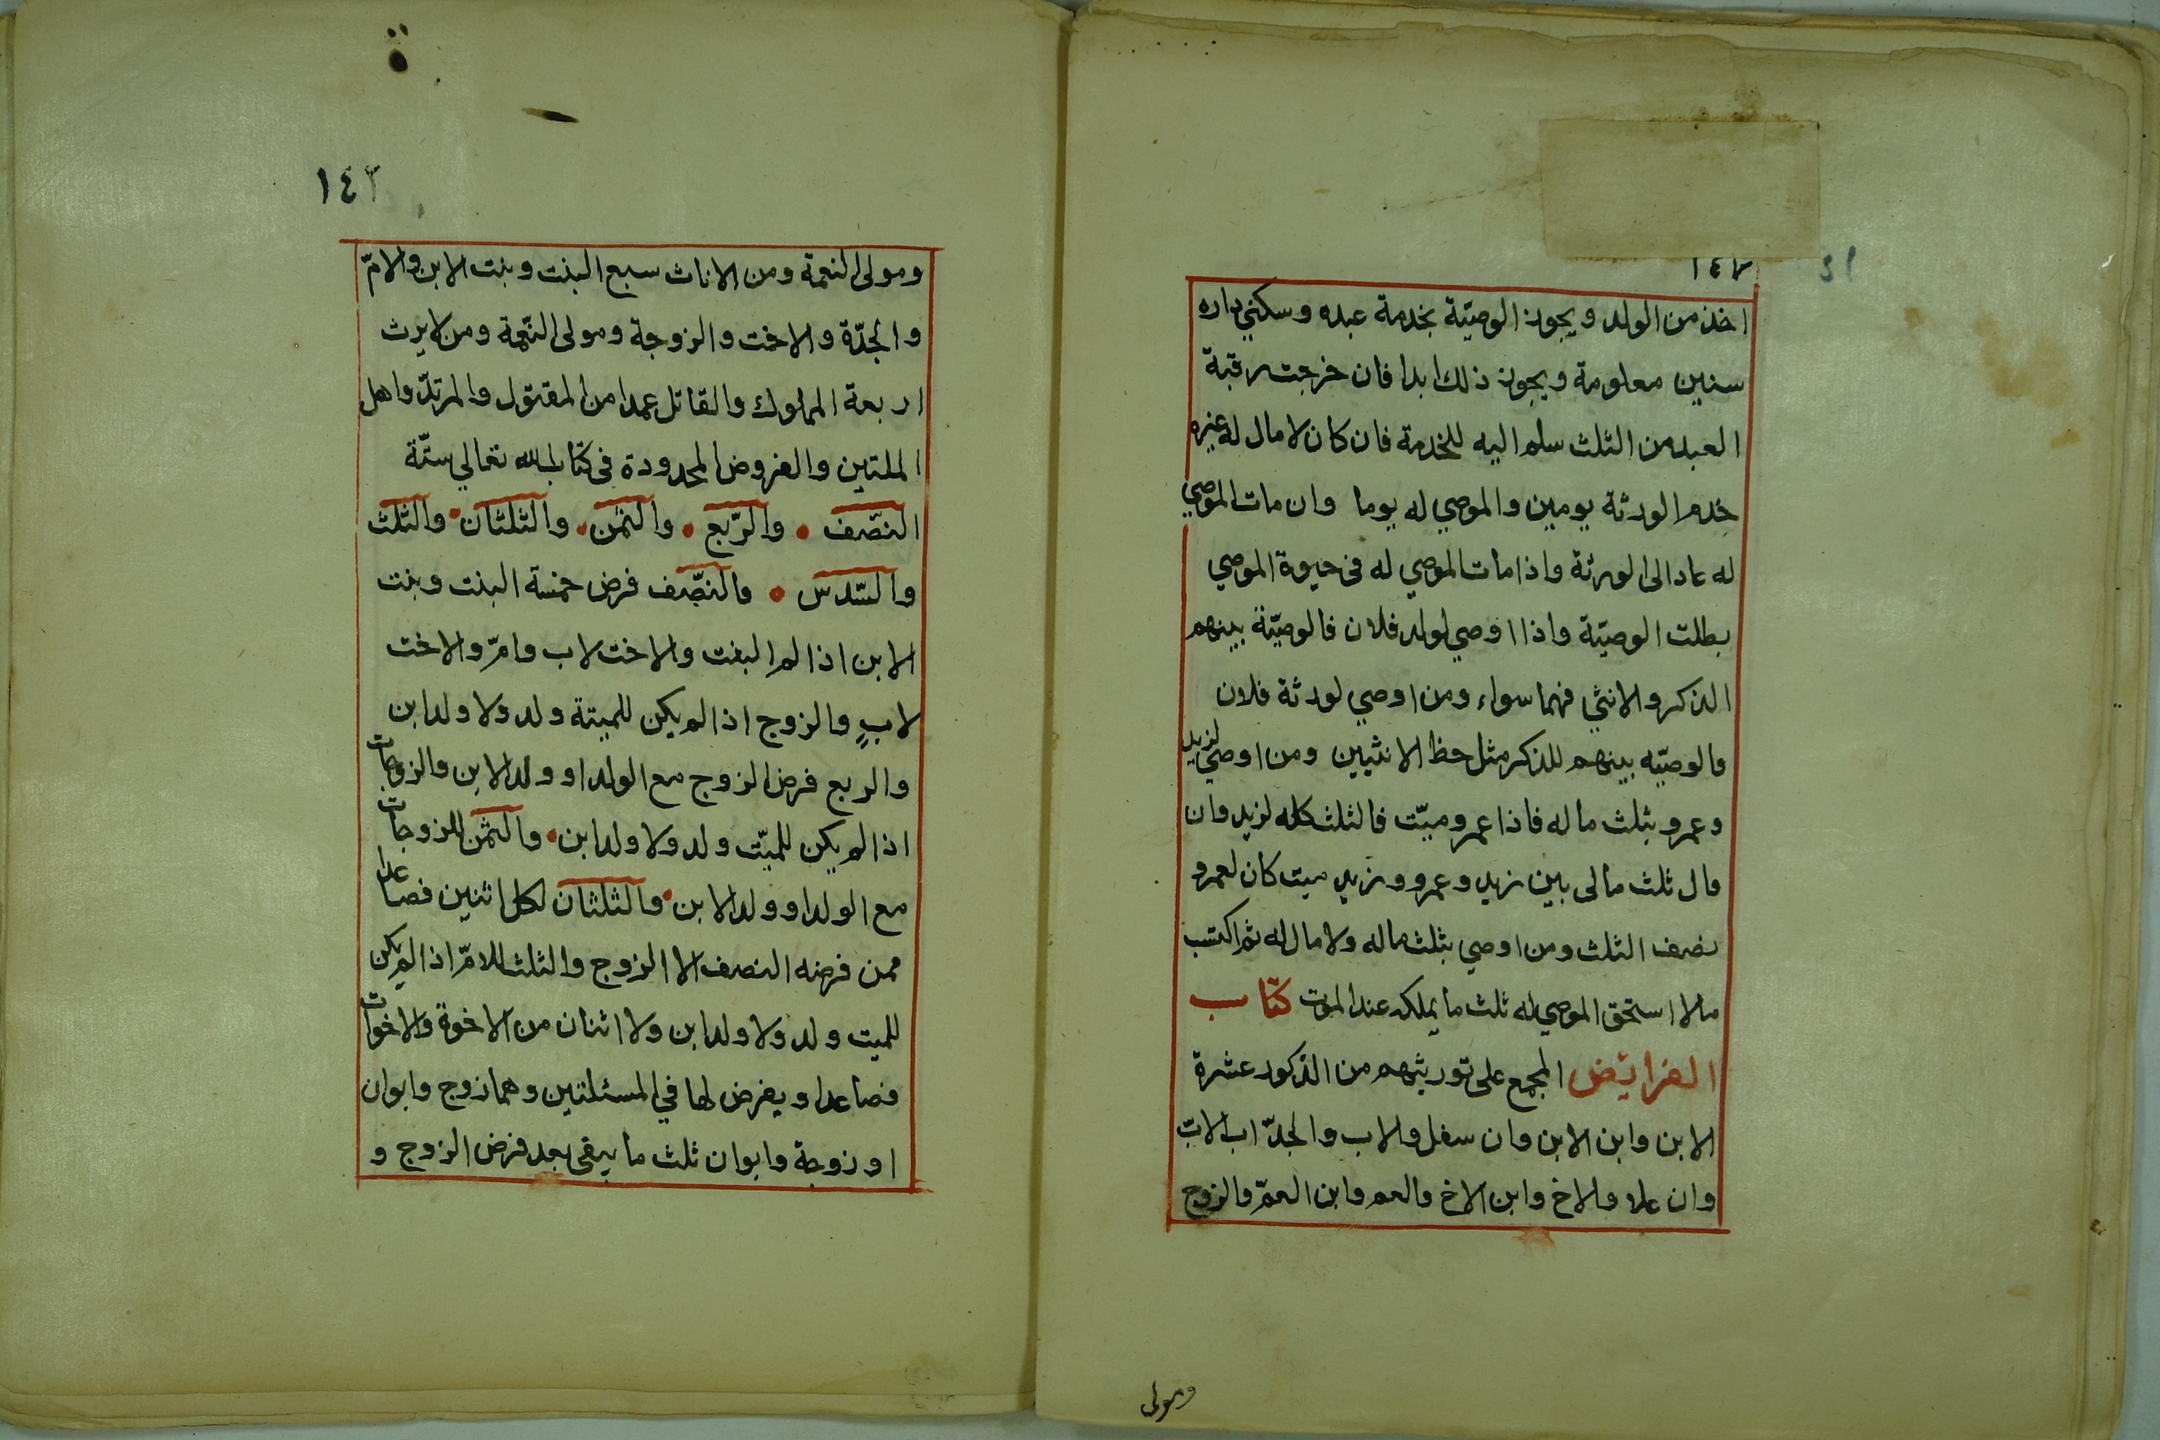 ١٤٢
اخذ من الولد ويجوز الوصيّة بخدمة عبده وسكني داره
سنين معلومة ويجوز ذلك ابدا فان خرجت رقبة
العبد من الثلث سلم اليه للخدمة فان كان لا مال له غيره
خدم الورثة يومين والموصي له يوما وان مات الموصي
له عاد الى الورثة واذا مات الموصي له فى حيوة الموصي
بطلت الوصيّة واذا اوصي لولد فلان فالوصيّة بينهم
الذكر والانثي فيهما سواء ومن اوصي لورثة فلان
فالوصيّه بينهم للذكر مثل حظ الانثيين ومن اوصي لزيد
وعمرو بثلث ماله فاذا عمرو ميّت فالثلث كله لزيد وان
قال ثلث مالى بين زيد وعمرو وزيد ميت كان لعمرو
نصف الثلث ومن اوصي بثلث ماله ولا مال له ثم اكتسب
مالا استحق الموصي له ثلث ما يملكه عند الموت كتاب
الفرائض المجمع على توريثهم من الذّكور عشرة
الابن وابن الابن وان سفل والاب والجدّ اب الاب
وان علا والاخ وابن الاخ والعم وابن العمّ والزوج
ومولى
١٤٣
ومولى النعمة ومن الاناث سبع البنت وبنت الابن والامّ
والجدّة والاخت والزوجة ومولى النّعمة ومن لا يرث
اربعة المملوك والقاتل عمدا من المقتول والمرتدّ واهل
الملتين والفروض المحدودة فى كتاب الله تعالي ستّة
النّصف والرّبع والثمن والثلثان والثلث
والسّدس فالنّصف فرض خمسة البنت وبنت
الابن اذا لم البنت والاخت لاب وامّ والاخت
لابٍ والزوج اذا لم يكن للميتة ولد ولا ولد ابن
والربع فرض الزوج مع الولد او ولد الابن والزوجات
اذا لم يكن للميّت ولد ولا ولد ابن والثمن للزوجات
مع الولد او ولد الابن والثلثان لكل اثنين فصاعدا
ممن فرضه النصف الا الزوج والثلث للامّ اذا لم يكن
للميت ولد ولا ولد ابن ولا اثنان من الاخوة والاخوات
فصاعدا ويفرض لها في المسئلتين وهما زوج وابوان
او زوجة وابوان ثلث ما يبقى بعد فرض الزوج و